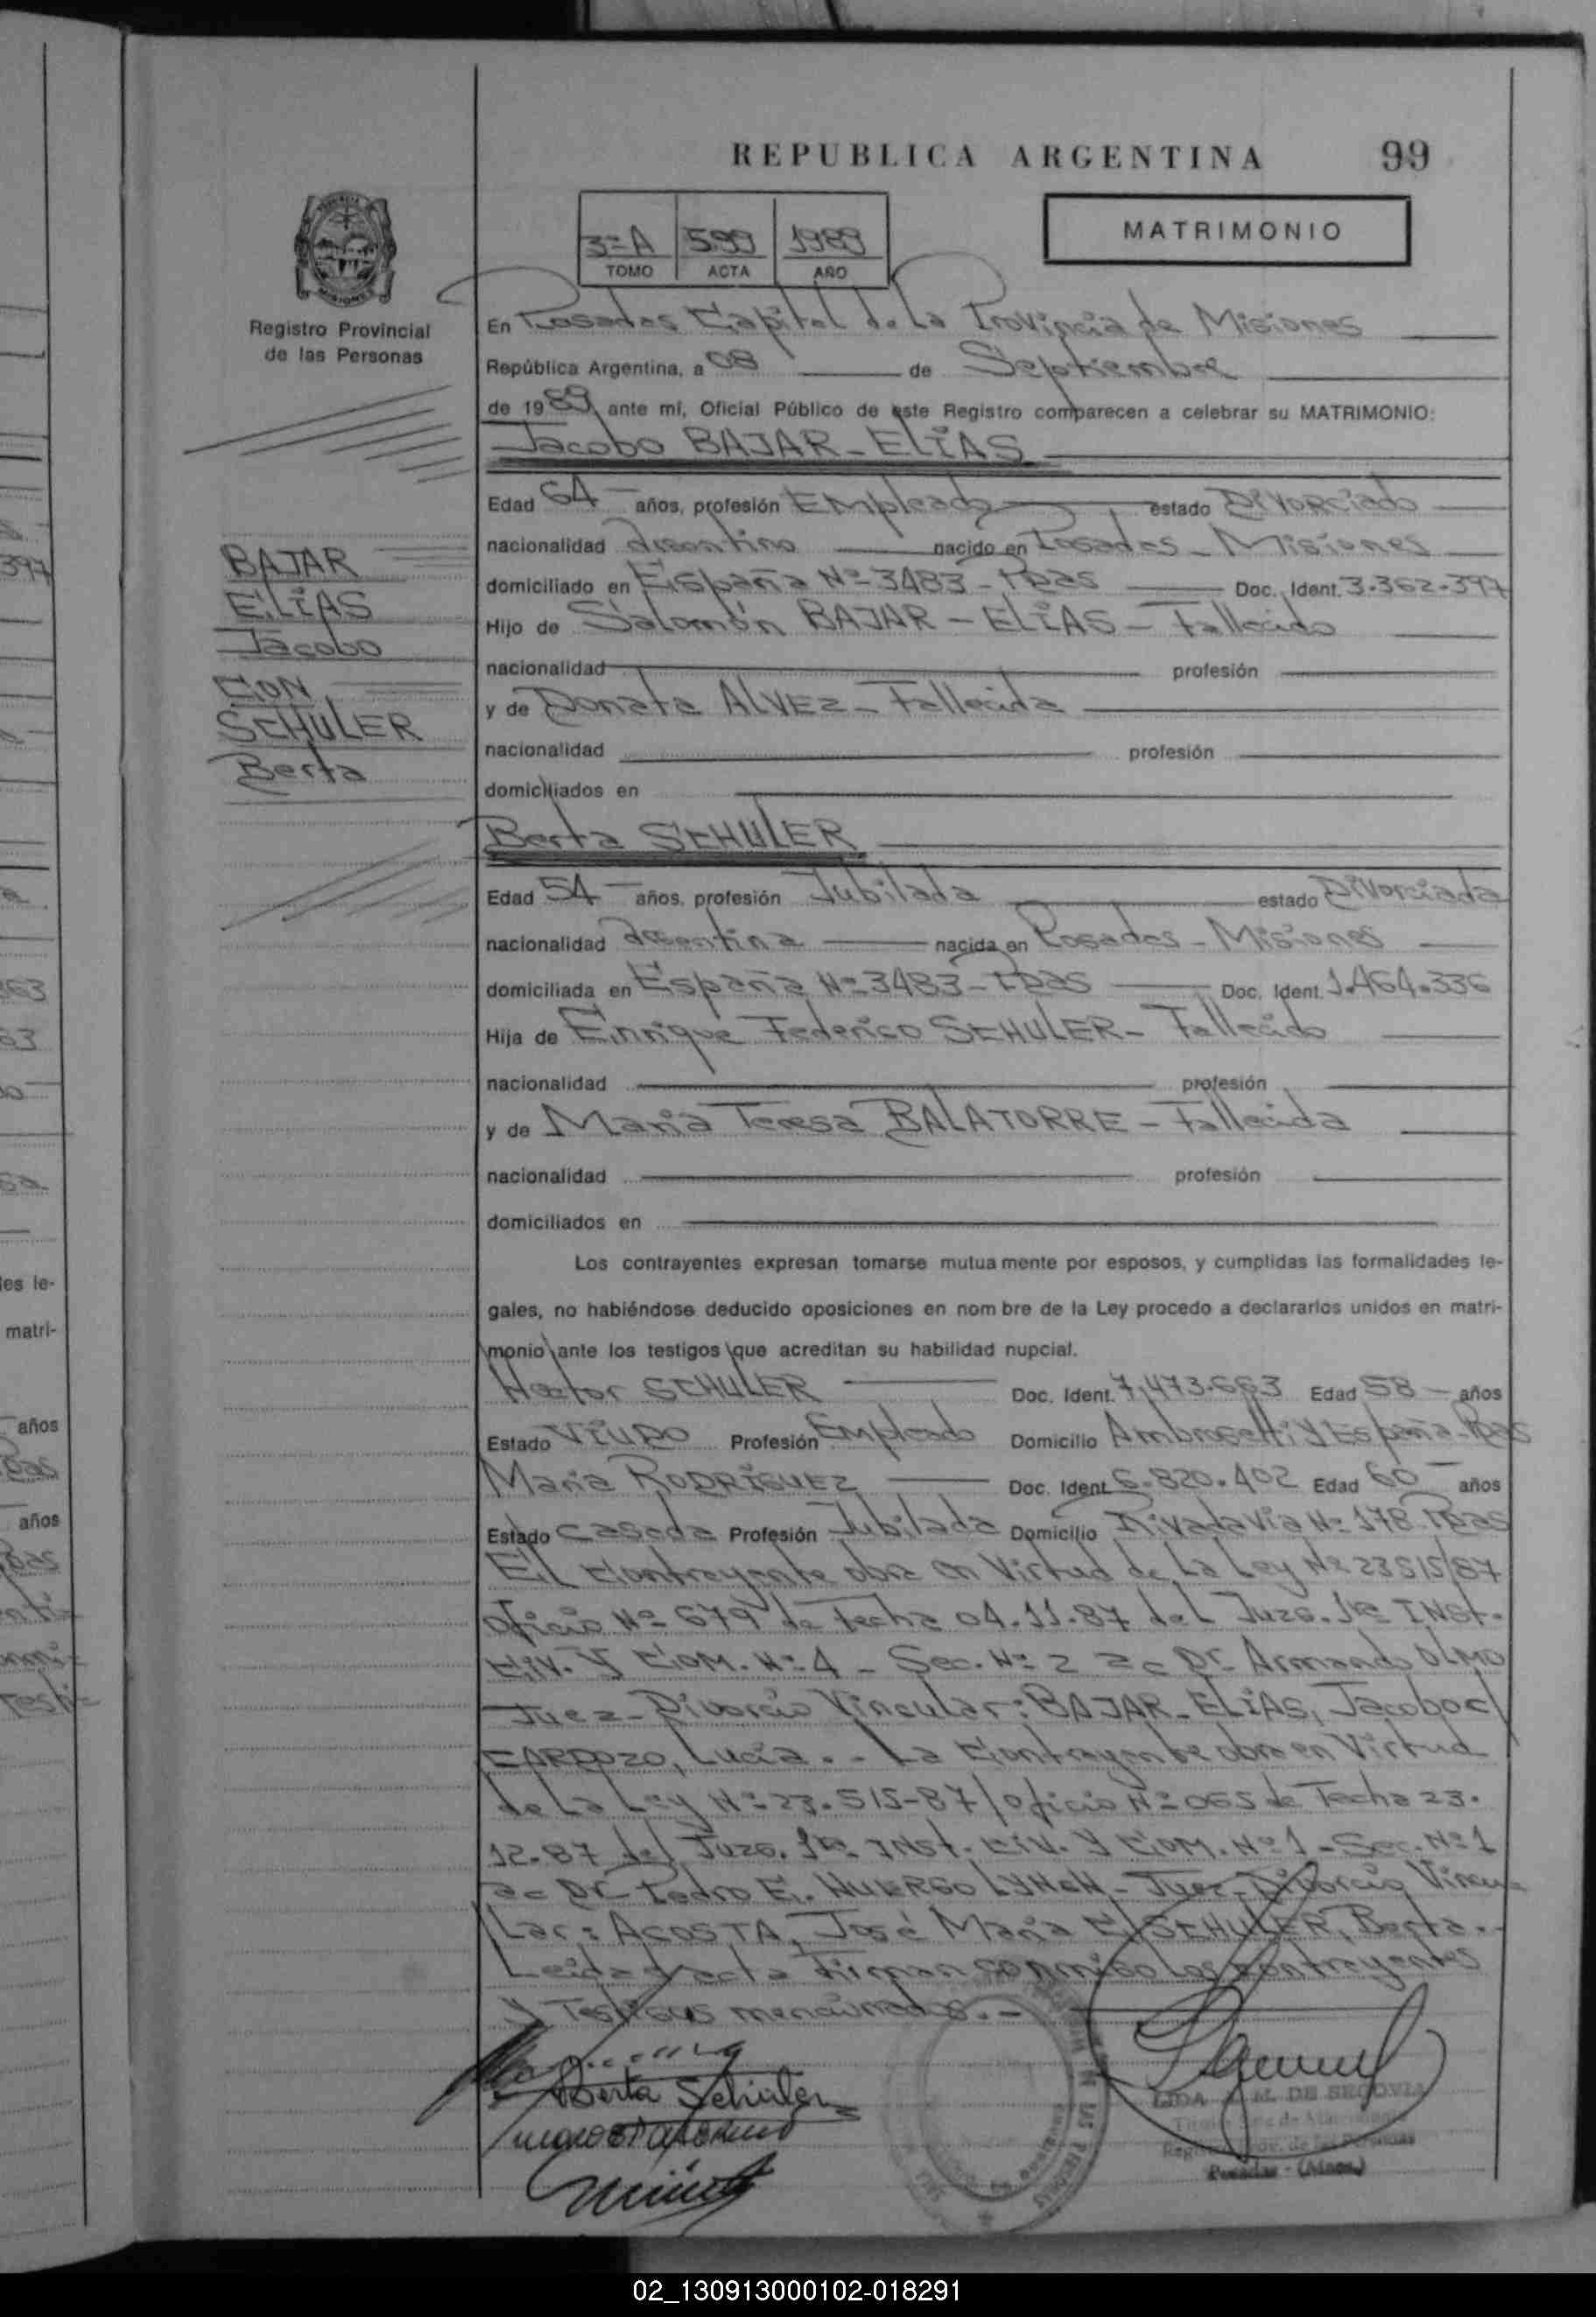 REPUBLICA ARGENTINA 99
3ºA 599 1989
TOMO ACTA AÑO
MATRIMONIO
Registro Provincial
de las Personas
En Posadas Capital de La Provincia de Misiones
República Argentina, a 08 de Septiembre
de 1989 ante mí, Oficial Público de este Registro comparecen a celebrar su MATRIMONIO:
Jacobo BAJAR-ELIAS
Edad 64 años, profesión Empleado estado Divorciado
nacionalidad Argentino nacido en Posadas-Misiones
domiciliado en España Nº 3483-Pdas Doc. Ident. 3.362.397
Hijo de Salomón BAJAR-ELIAS-Fallecido
nacionalidad profesión
y de Donata ALVEZ-Fallecida
nacionalidad profesión
domiciliados en
BAJAR
ELIAS
Jacobo
CON
SCHULER
Berta
Berta SCHULER
Edad 54 años, profesión Jubilada estado Divorciada
nacionalidad Argentina nacida en Posadas-Misiones
domiciliada en España Nº 3483-Pdas Doc. Ident. 1.464.336
Hija de Enrique Federico SCHULER-Fallecido
nacionalidad profesión
y de Maria Teresa BALATORRE-Fallecida
nacionalidad profesión
domiciliados en
Los contrayentes expresan tomarse mutua mente por esposos, y cumplidas las formalidades le-
gales, no habiéndose deducido oposiciones en nom bre de la Ley procedo a declararlos unidos en matri-
monio ante los testigos que acreditan su habilidad nupcial.
Hector SCHULER Doc. Ident. 7.473.663 Edad 58 años
Estado Viudo Profesión Empleado Domicilio Ambrosetti y España-Pdas
Maria RODRIGUEZ Doc. Ident. 6.820.402 Edad 60 años
Estado Casada Profesión Jubilada Domicilio Rivadavia Nº 178 Pdas
El Contrayente obra en Virtud de La Ley Nº 23515/87
oficio Nº 679 de Fecha 04.11.87 del Juzg. 1ra INst.
CiV. Y COM. Nº 4 - Sec. Nº 2 a c Dr. Armando OLMO
Juez-Divorcio Vincular: BAJAR-ELIAS, Jacobo c/
CARDOZO, Lucia.- La Contrayente obra en Virtud
de La Ley Nº 23.515-87/oficio Nº 065 de Fecha 23.
12-87 del Juzg. 1ra INst. CiV. Y COM. Nº 1-Sec. Nº 1
a c Dr Pedro E. HUERGO LYNCH-Juez-Divorcio Vincu-
Lar: ACOSTA, José Maria C/ SCHULER, Berta.-
Leida y acta Firman conmigo Los contrayentes
y Testigos mencionados.-
Berta Schuler
LIDA M. DE SEGOVIA
Posadas - (Mnes.)
397
les le-
matri-
años
años
02_130913000102-018291